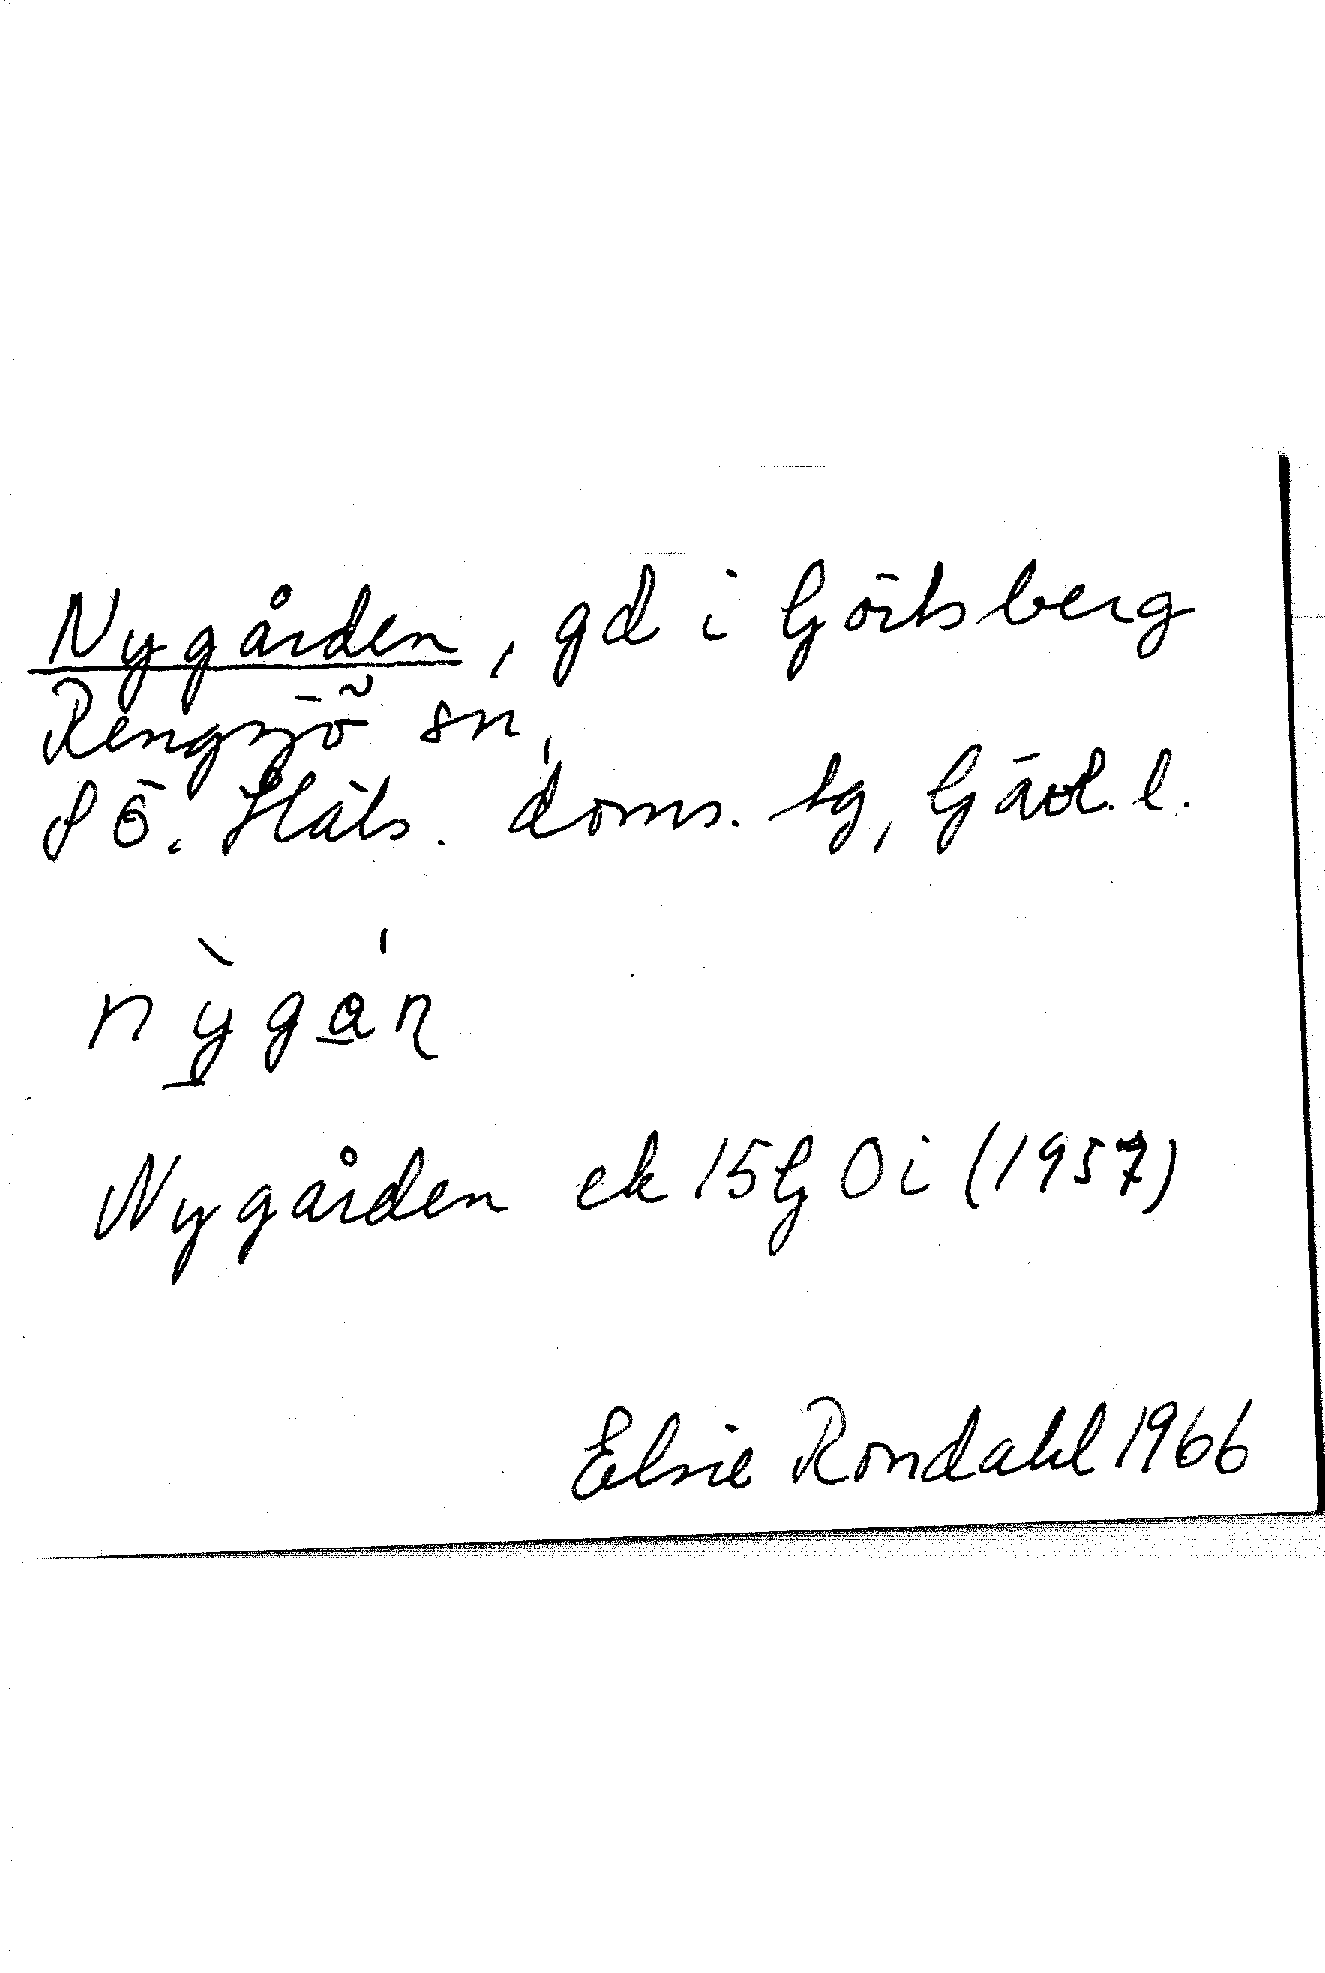 Nygården, gd i Görtsberg
Rengsjö sn,
SÖ. Häls. doms. tg, Gävl. l.
nỳgán
Nygården ek 15G Oi (1957)
Elsie Rondahl 1966